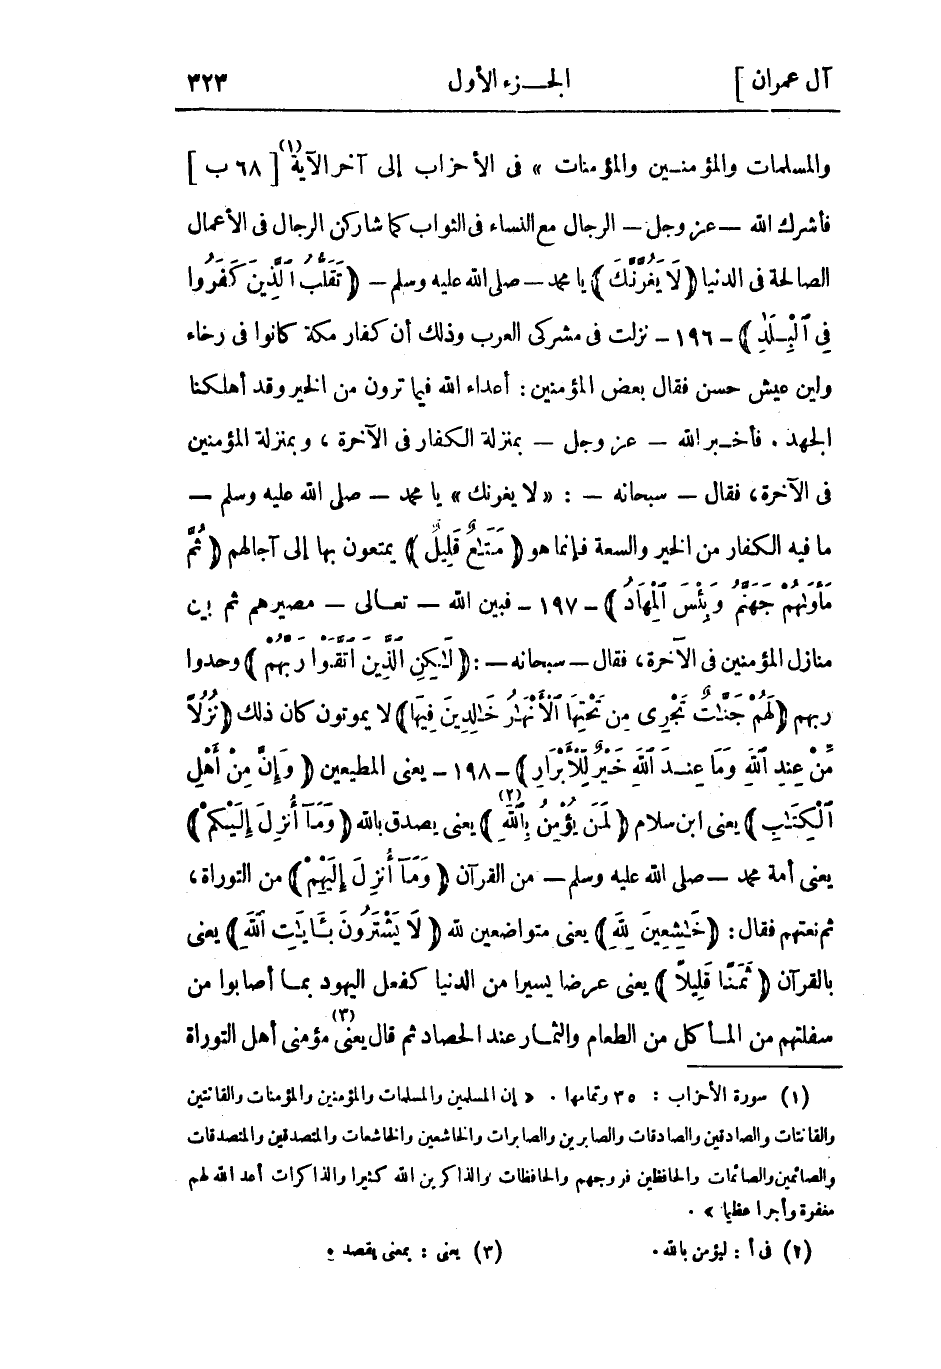 آل عمران ] الجــزء الأول ٣٢٣
والمسلمات والمؤمنـين والمؤمنات » فى الأحزاب إلى آخر الآية(١) [ ٦٨ ب ]
فأشرك الله — عز وجل — الرجال مع النساء فى الثواب كما شاركن الرجال فى الأعمال
الصالحة فى الدنيا ﴿ لَا يَغُرَّنَّكَ ﴾ يا محمد — صلى الله عليه وسلم — ﴿ تَقَلُّبُ ٱلَّذِينَ كَفَرُوا
فِى ٱلْبِـلَـٰدِ ﴾ - ١٩٦ - نزلت فى مشركى العرب وذلك أن كفار مكة كانوا فى رخاء
ولين عيش حسن فقال بعض المؤمنين : أعداء الله فيما ترون من الخير وقد أهلكنا
الجهد . فأخـبر الله — عز وجل — بمنزلة الكفار فى الآخرة ، وبمنزلة المؤمنين
فى الآخرة، فقال — سبحانه — : « لا يغرنك » يا محمد — صلى الله عليه وسلم —
ما فيه الكفار من الخير والسعة فإنما هو ﴿ مَتَـٰعٌ قَلِيلٌ ﴾ يمتعون بها إلى آجالهم ﴿ ثُمَّ
مَأْوَىٰهُمْ جَهَنَّمُ وَبِئْسَ ٱلْمِهَادُ ﴾ - ١٩٧ - فبين الله — تعـالى — مصيرهم ثم بين
منازل المؤمنين فى الآخرة، فقال — سبحانه — : ﴿ لَـٰكِنِ ٱلَّذِينَ ٱتَّقَوْا رَبَّهُمْ ﴾ وحدوا
ربهم ﴿ لَهُمْ جَنَّـٰتٌ تَجْرِى مِن تَحْتِهَا ٱلْأَنْهَـٰرُ خَـٰلِدِينَ فِيهَا ﴾ لا يموتون كان ذلك ﴿ نُزُلًا
مِّنْ عِندِ ٱللَّهِ وَمَا عِنـدَ ٱللَّهِ خَيْرٌ لِّلْأَبْرَارِ ﴾ - ١٩٨ - يعنى المطيعين ﴿ وَإِنَّ مِنْ أَهْلِ
ٱلْكِتَـٰبِ ﴾ يعنى ابن سلام ﴿ لَمَن يُؤْمِنُ بِٱللَّهِ(٢) ﴾ يعنى يصدق بالله ﴿ وَمَآ أُنزِلَ إِلَيْكُمْ ﴾
يعنى أمة محمد — صلى الله عليه وسلم — من القرآن ﴿ وَمَآ أُنزِلَ إِلَيْهِمْ ﴾ من التوراة،
ثم نعتهم فقال : ﴿ خَـٰشِعِينَ لِلَّهِ ﴾ يعنى متواضعين لله ﴿ لَا يَشْتَرُونَ بِـَٔايَـٰتِ ٱللَّهِ ﴾ يعنى
بالقرآن ﴿ ثَمَنًا قَلِيلًا ﴾ يعنى عرضا يسيرا من الدنيا كفعل اليهود بمـا أصابوا من
سفلتهم من المـأكل من الطعام والثمـار عند الحصاد ثم قال يعنى(٣) مؤمنى أهل التوراة
(١) سورة الأحزاب : ٣٥ وتمامها . « إن المسلمين والمسلمات والمؤمنين والمؤمنات والقانتين
والقانتات والصادقين والصادقات والصابرين والصابرات والخاشعين والخاشعات والمتصدقين والمتصدقات
والصائمين والصائمات والحافظين فروجهم والحافظات والذاكرين الله كثيرا والذاكرات أعد الله لهم
مغفرة وأجرا عظيما » .
(٢) فى أ : ليؤمن بالله . (٣) يعنى : بمعنى يقصد .